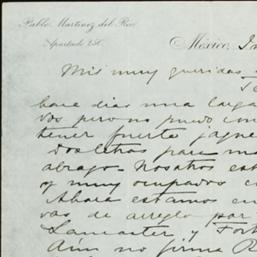 Pablo Martinez del Rio
Apartado 250
México,
Mis muy queridas
hace dias una larga
vos pero no puedo con
tener fuerte jaque
dos letras para ma
abrazo. Nosotros est
y muy ocupados c
Ahora estamos en
vas de arreglo por
Lancaster y Fort
Aún no firma R